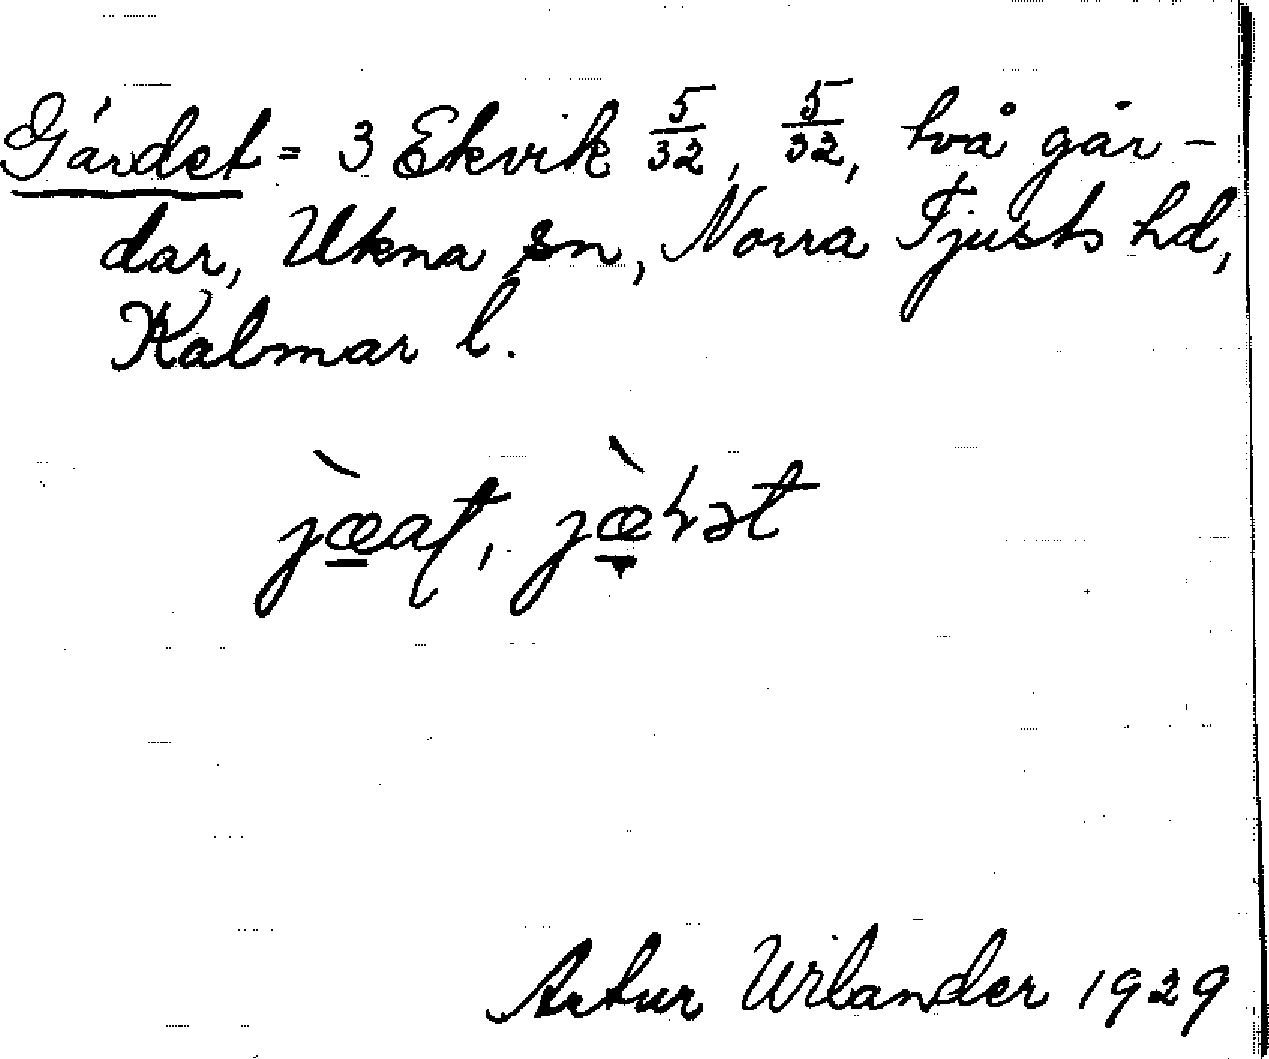 Gärdet = 3 Ekvik 5/32, 5/32, två går-
dar, Ukna sn, Norra Tjusts hd,
Kalmar l.
Artur Wilander 1929